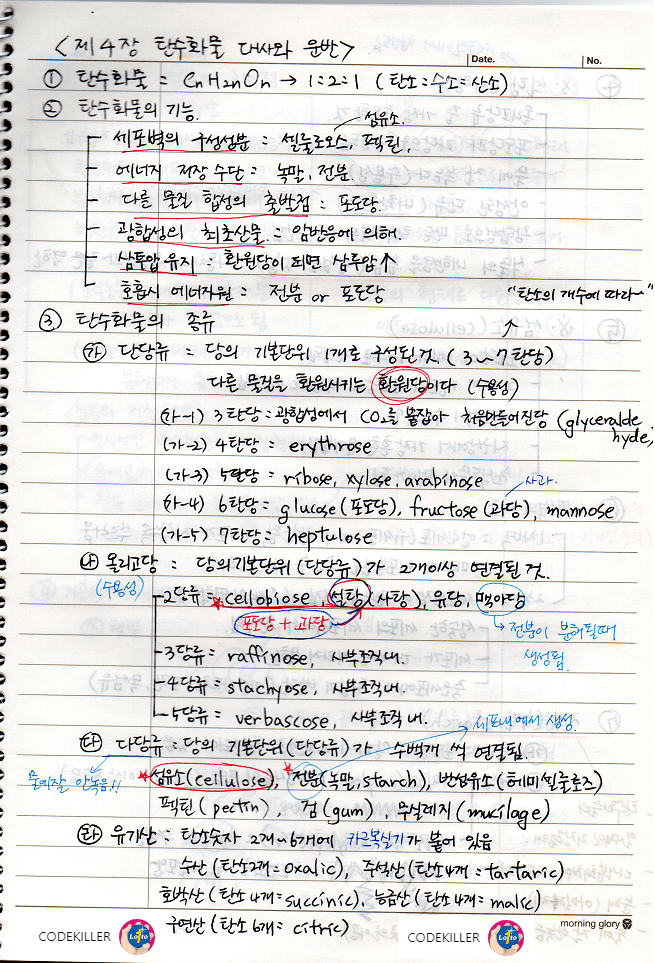 <제4장 탄수화물 대사와 운반>
Date. No.
① 탄수화물 = CnH2nOn → 1:2:1 (탄소:수소:산소)
② 탄수화물의 기능.
섬유소.
세포벽의 구성성분 : 셀룰로오스, 펙틴,
에너지 저장 수단 : 녹말, 전분.
다른 물질 합성의 출발점 : 포도당.
광합성의 최초산물 : 암반응에 의해.
삼투압 유지 : 환원당이 되면 삼투압↑
호흡시 에너지원 : 전분 or 포도당
"탄소의 개수에 따라~"
③ 탄수화물의 종류
㉮ 단당류 : 당의 기본단위 1개로 구성된 것. (3~7탄당)
다른 물질을 환원시키는 환원당이다 (수용성)
(가-1) 3탄당 : 광합성에서 CO2를 붙잡아 처음만들어진당 (glyceralde
hyde)
(가-2) 4탄당 = erythrose
(가-3) 5탄당 = ribose, xylose, arabinose
사과.
(가-4) 6탄당 = glucose(포도당), fructose(과당), mannose
(가-5) 7탄당 = heptulose
㉯ 올리고당 : 당의기본단위(단당류)가 2개이상 연결된 것.
(수용성)
2당류 : ★cellobiose, 설탕(사탕), 유당, 맥아당
포도당 + 과당
→ 전분이 분해될때
생성됨.
3당류 : raffinose, 사부조직내.
4당류 : stachyose, 사부조직내.
5당류 : verbascose, 사부조직내.
세포내에서 생성.
㉰ 다당류 : 당의 기본단위(단당류)가 수백개 씩 연결됨.
물에잘 안녹음!!
★섬유소(cellulose), ★전분(녹말, starch), 반섬유소(헤미셀룰로즈)
펙틴(pectin), 검(gum), 무실레지(mucilage)
㉱ 유기산 : 탄소숫자 2개~6개에 카르복실기가 붙어 있음
수산(탄소2개 : oxalic), 주석산(탄소4개 : tartaric)
호박산(탄소4개 : succinic), 능금산(탄소4개 : malic)
구연산(탄소6개 : citric)
CODEKILLER Lotto CODEKILLER Lotto morning glory